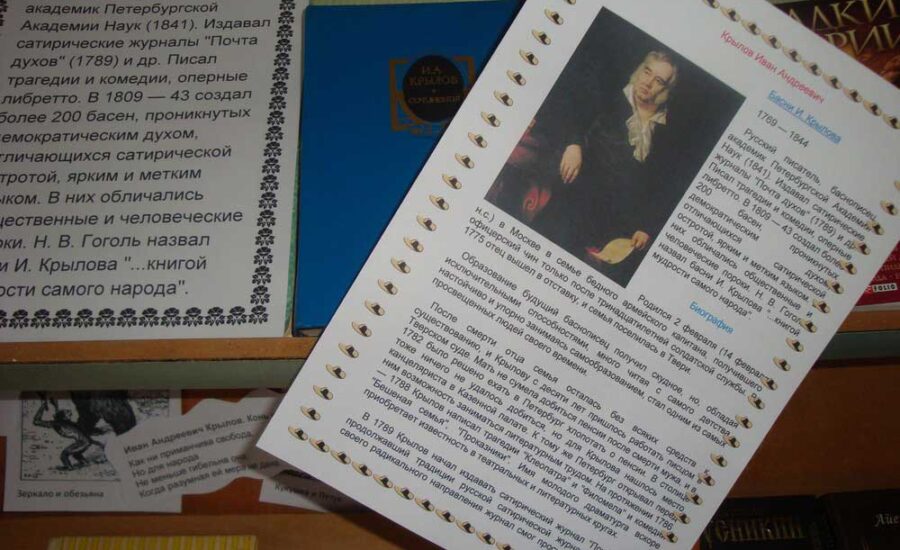 академик Петербургской
Академии Наук (1841). Издавал
сатирические журналы "Почта
духов" (1789) и др. Писал
трагедии и комедии, оперные
либретто. В 1809 — 43 создал
более 200 басен, проникнутых
демократическим духом,
отличающихся сатирической
остротой, ярким и метким
языком. В них обличались
общественные и человеческие
пороки. Н. В. Гоголь назвал
И. Крылова "...книгой
мудрости самого народа".
И.А.
КРЫЛОВ
СОЧИНЕНИЯ
Крылов Иван Андреевич
Басни И. Крылова
1789 — 1844
Русский писатель, баснописец,
академик Петербургской Академии
Наук (1841). Издавал сатирические
журналы "Почта духов" (1789) и др.
Писал трагедии и комедии, оперные
либретто. В 1809 — 43 создал более
200 басен, проникнутых
демократическим духом,
отличающихся сатирической
остротой, ярким и метким языком. В
них обличались общественные и
человеческие пороки. Н. В. Гоголь
назвал басни И. Крылова "...книгой
мудрости самого народа"
Биография
Родился 2 февраля (14 февраля
н.с.) в Москве в семье бедного армейского капитана, получившего
офицерский чин только после тринадцатилетней солдатской службы. В
1775 отец вышел в отставку, и семья поселилась в Твери.
Образование будущий баснописец получил скудное, но, обладая
исключительными способностями, много читая с самого детства,
настойчиво и упорно занимаясь самообразованием, стал одним из самых
просвещенных людей своего времени.
После смерти отца семья осталась без всяких средств к
существованию, и Крылову с десяти лет пришлось работать писцом в
Тверском суде. Мать не сумела добиться пенсии после смерти мужа, и в
1782 было решено ехать в Петербург хлопотать о пенсии. В столице
тоже ничего не удалось добиться, но для Крылова нашлось место
канцеляриста в Казенной палате. К тому же Петербург открывал перед
ним возможность заниматься литературным трудом. На протяжении 1786
— 1788 Крылов написал трагедии "Клеопатра" и "Филомела" и комедии
"Бешеная семья", "Проказники". Имя молодого драматурга вскоре
приобретает известность в театральных и литературных кругах.
В 1789 Крылов начал издавать сатирический журнал
продолжавший традиции русской сатирической
своего радикального направления журнал смог
Иван Андреевич Крылов.
Как ни приманчива свобода,
Но для народа
Не меньше гибельна она,
Когда разумная ей мера не дана.
Зеркало и обезьяна
Кукушка и Петух
FOLIO